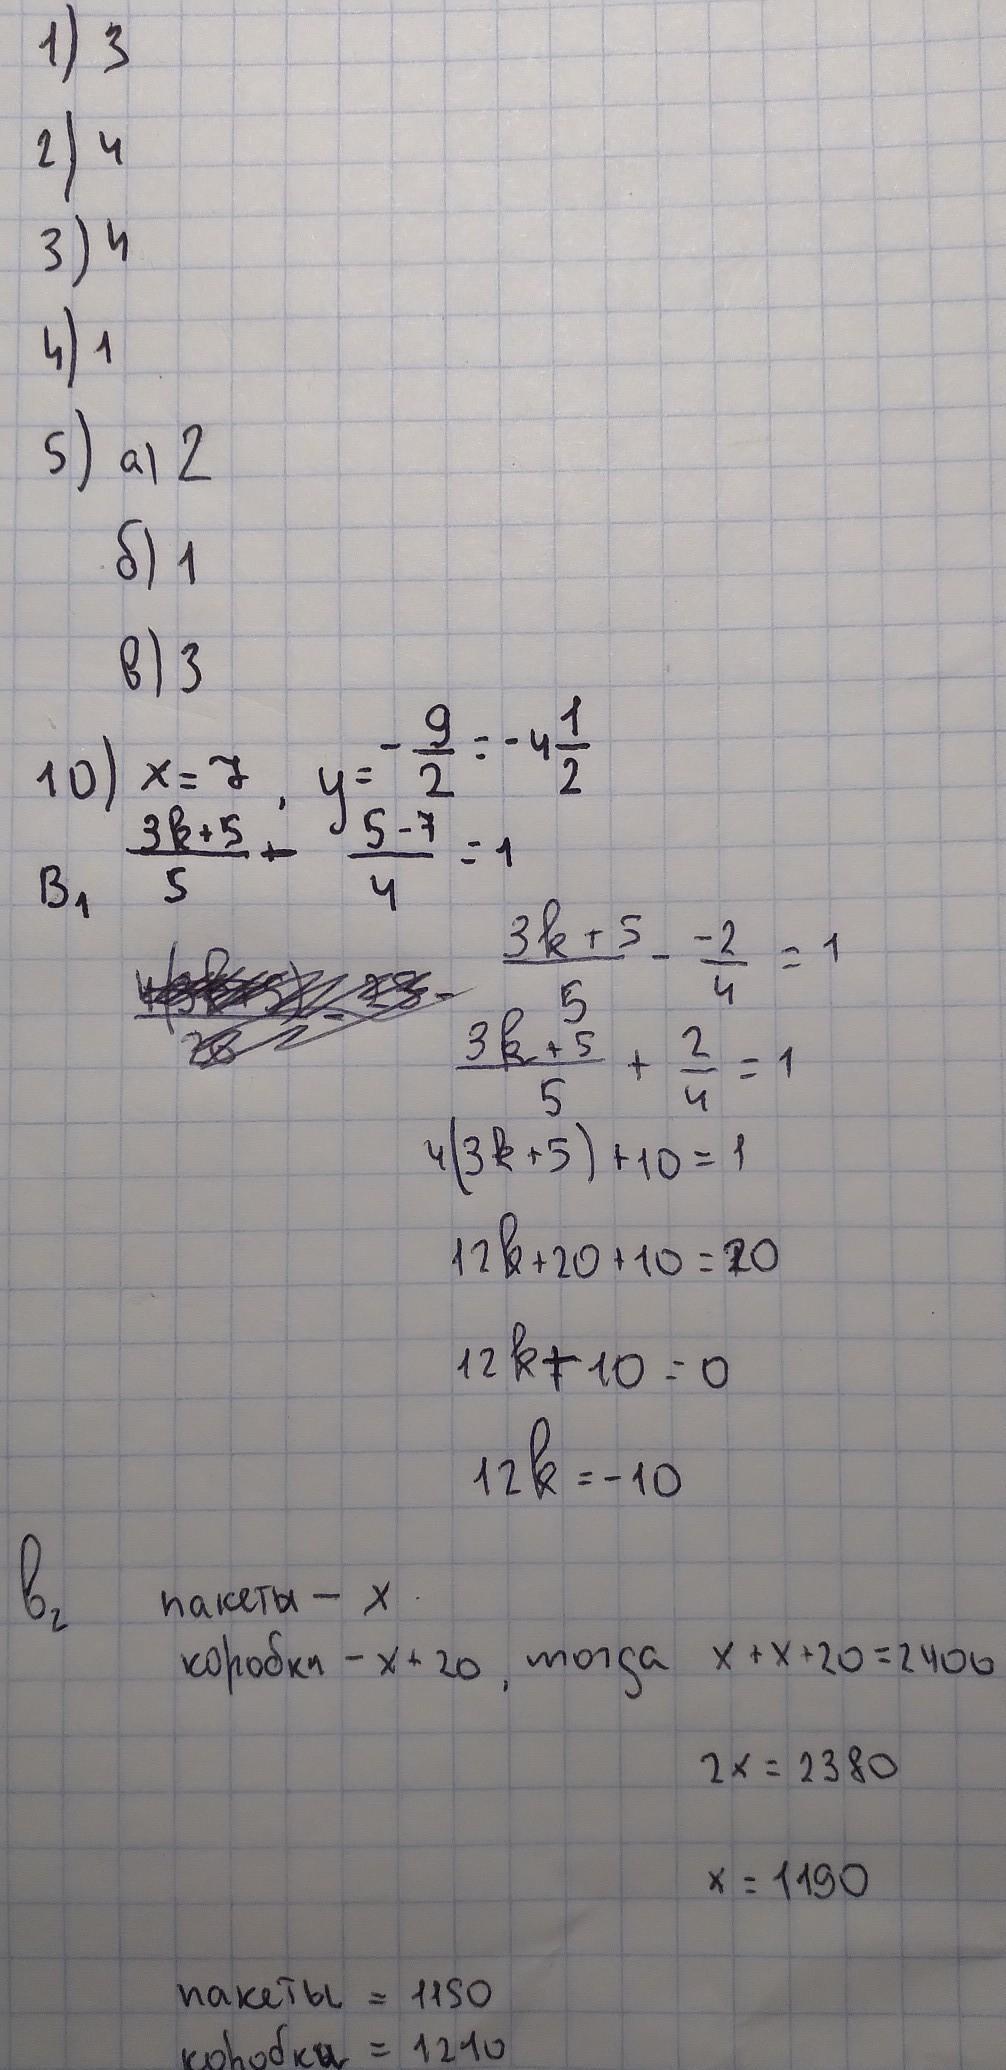 1) 3
2) 4
3) 4
4) 1
5) а) 2
б) 1
в) 3
10) x = 7, y = -9/2 = -4 1/2
B1 (3k+5)/5 - (5-7)/4 = 1
(3k+5)/5 - (-2)/4 = 1
(3k+5)/5 + 2/4 = 1
4(3k+5) + 10 = 1
12k + 20 + 10 = 20
12k + 10 = 0
12k = -10
B2 пакеты - x
коробки - x + 20, тогда x + x + 20 = 2400
2x = 2380
x = 1190
пакеты = 1190
коробки = 1210